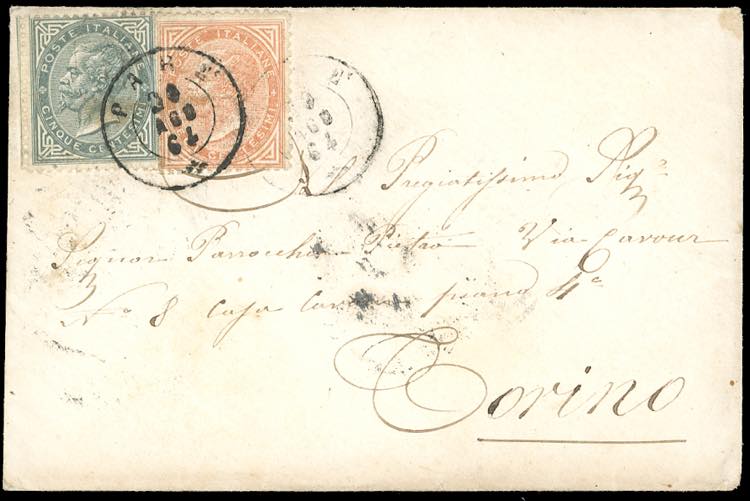 POSTE ITALIANE
CINQUE CENTESIMI
POSTE ITALIANE
CENTESIMI
PARMA
AGO
64
Al Pregiatissimo Sigr
Signor Parrocchia Pietro Via Cavour
No 8 casa piano 4o
Torino